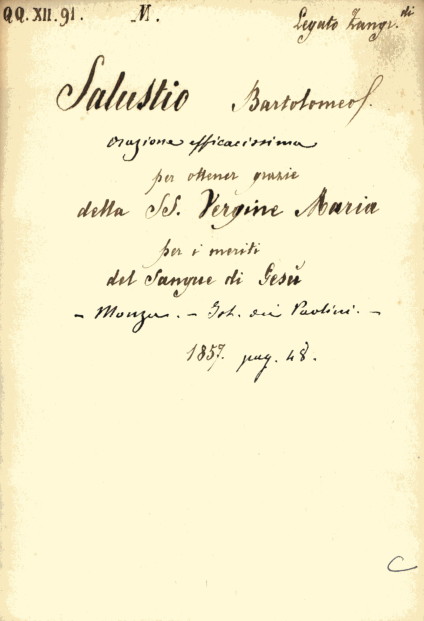 QQ.XII.91. M. Legato Zangr.di
Salustio Bartolomeo
orazione efficacissima
per ottener grazie
della SS. Vergine Maria
per i meriti
del Sangue di Gesù
- Monza. - Ist. dei Paolini. -
1857. pag. 48.
C